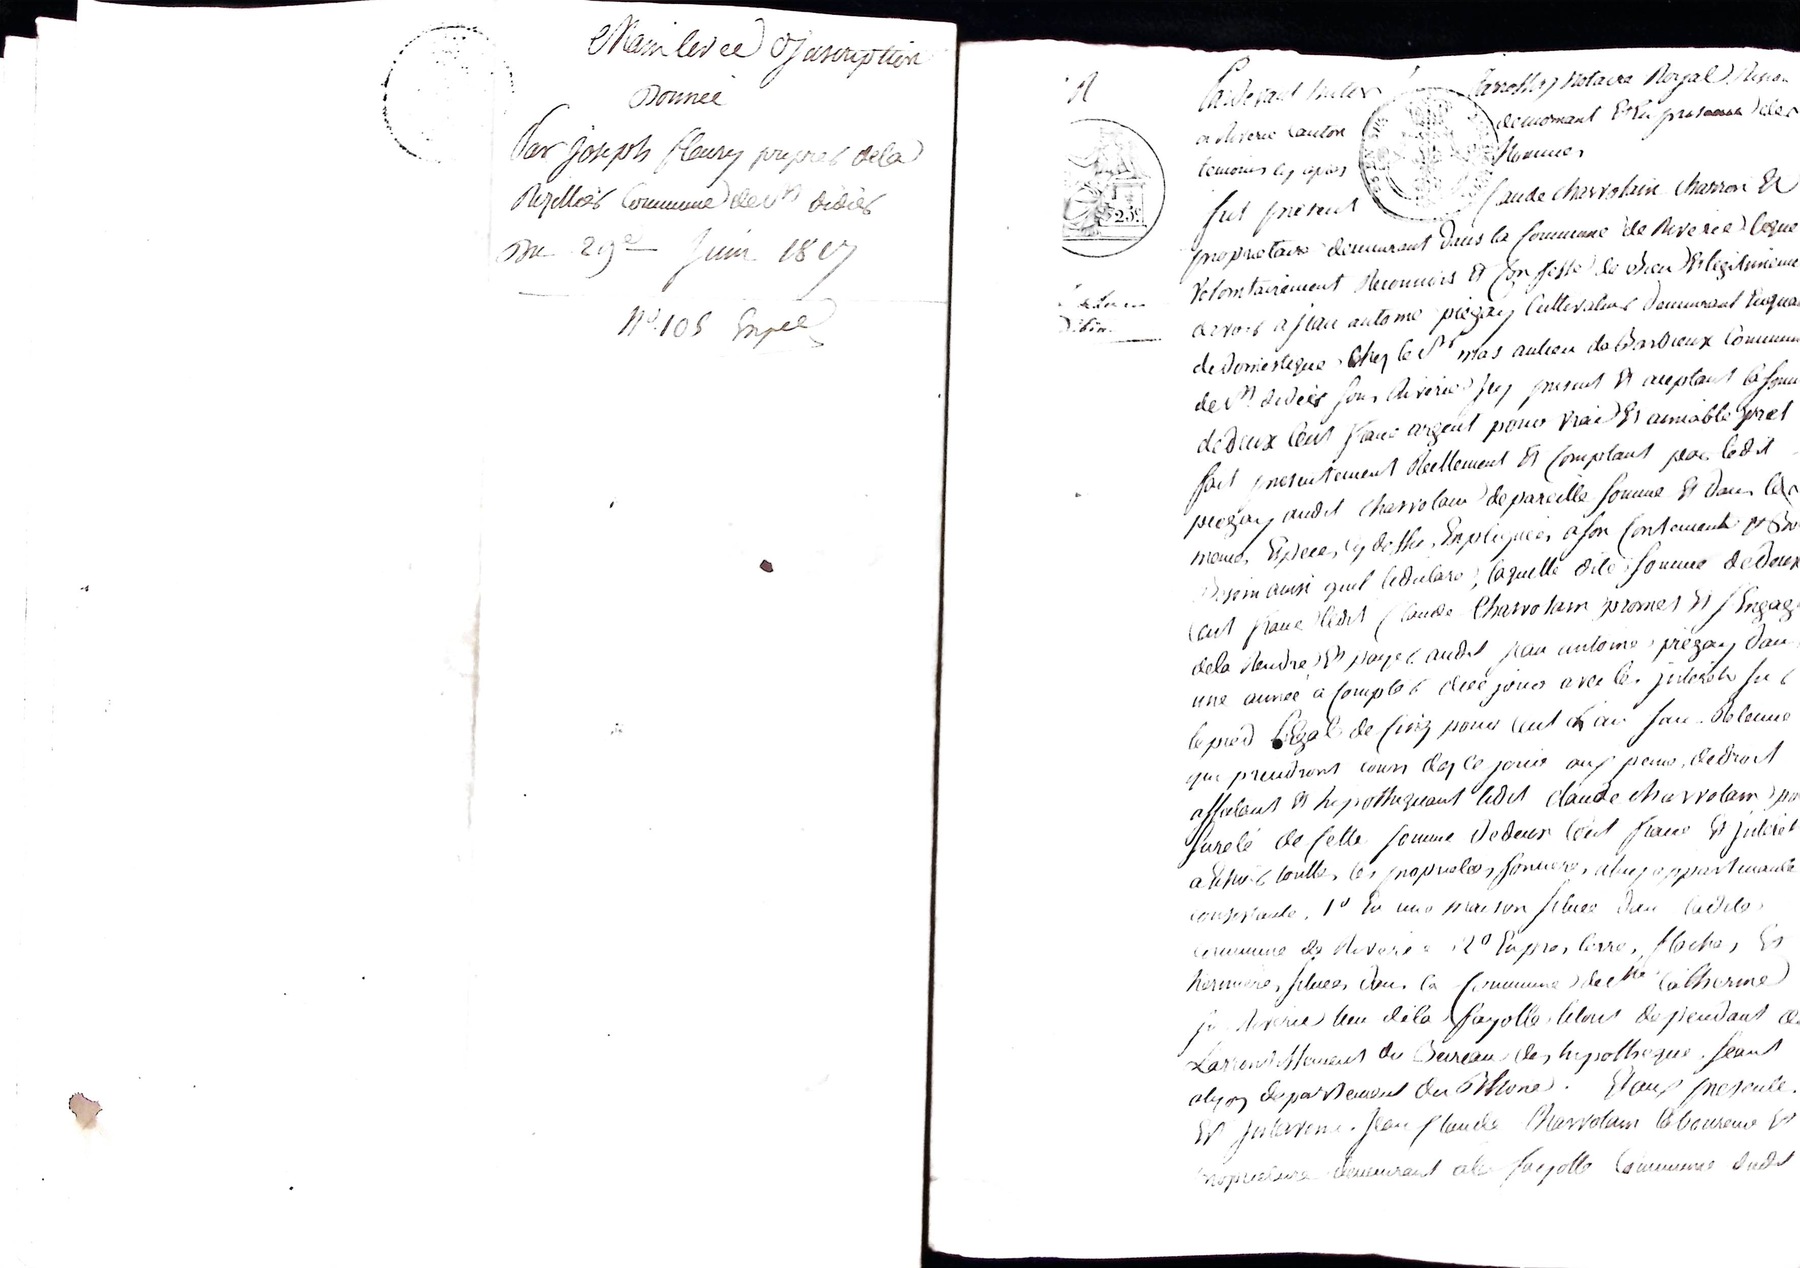 Main levée d'Inscription
Donnée
Par joseph fleury propre. dela
Rizillier Commune de St didier
Du 29e Juin 1817
No. 105 Exped.
Pardevant notaire Royal
a Riverie canton demomant Et En presence des
temoins cy apres Nommes
fut présent Claude Charvolain charron Et
proprietaire demeurant dans la Commune de Riverie lequel
Volontairement Reconnois Et Confesse de bien Et legitimeme
devoir a jean antoine piégay Cultivateur demeurant Enqua
de Domestique Chez le Sr mas au lieu de Commun
de St didier sous Riverie Icy present Et aceptant la som
de deux Cent franc argent pour Vrai Et amiable pret
fait presentement Reellement Et Comptant par ledit
piegay audit charvolain de pareille somme Et dans les
memes Especes cy dessus Expliquées a son Contentement
ainsi quil le declare, laquelle dite somme de deux
cent franc ledit Claude Charvolain promet Et sengage
dela Rendre Et payer audit jean antoine piégay dans
une année à Compter de ce jour avec les interets sur
le pied légal de Cinq pour cent l'an sans Retenue
qui prendront cours des ce jour aux peines de droit
affectant Et hypothequant ledit claude charvolain po
sureté de cette somme de deux Cent franc Et interet
toutes les proprietes foncieres a luy appartenante
consistante. 1o En une maison située dans ladite
commune de Riverie 2o En pres, terres, Et
situees dans la Commune de Ste Catherine
su Riverie lieu dela fayolle le tout dependant de
Larrondissement du Bureau des hypotheque seant
alyon departement du Rhone. Et aux presente
Et intervenu Jean Claude Charvolain laboureur Et
proprietaire demeurant ala fayolle Commune dudit